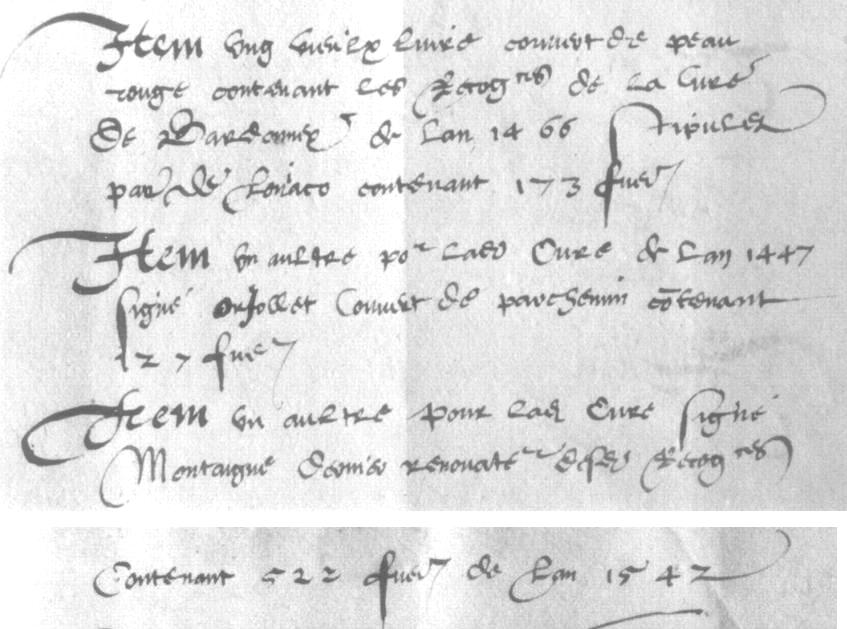 Item ung vieulx livre couvert de peau
rouge contenant les Recogces de la Cure
de Bardonnex de Lan 1466 Stipules
par de Lonaco contenant 173 fuer
Item un aultre por lad Cure de Lan 1447
signé orJollet Couvert de parchemin contenant
127 fuer
Item un aultre pour lad Cure signé
Montaigue dernier renovater desd Recogces
Contenant 522 fuer de Lan 1542